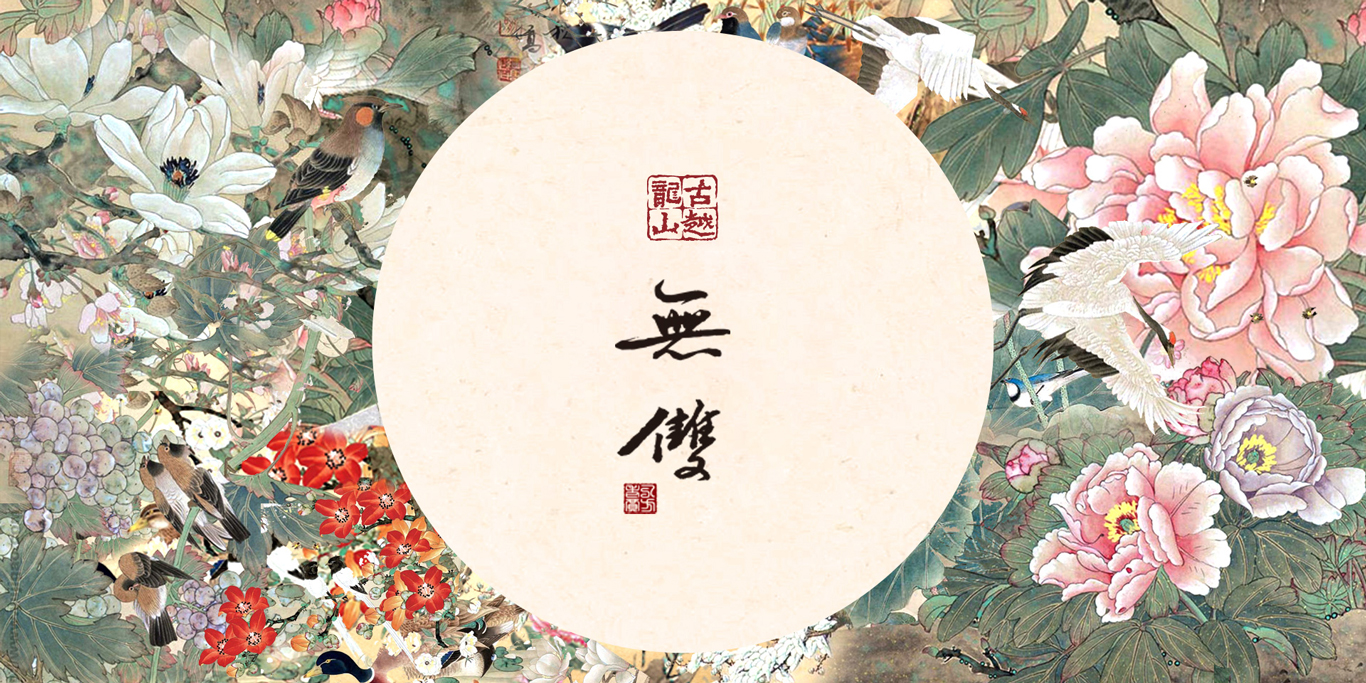 古越
龍山
無雙